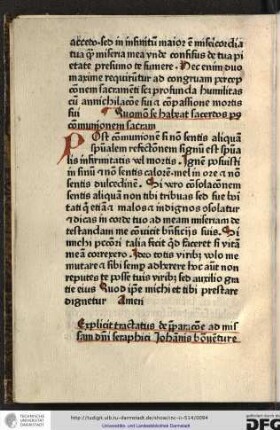 acceto·sed in infinitū maior ē misericordia
tua qͥ miseria mea vnde confisus de tua pi
etate presumo te sumere. Hec enim duo
maxime requirūtur ad congruam percep
cōnem sacramēti scꝫ profunda humilitas
cū annichilacōe sui ⁊ cōpassione mortis
sui Quomō se habeat sacerdos pꝰ
cōmunionem sacram
Post cōmunionē si nō sentis aliquā
spūalem refectōnem signū est spūa
lis infirmitatis vel mortis. Ignē posuisti
in sinū ⁊ nō sentis calorē·mel in ore ⁊ nō
sentis dulcedinē. Si vero cōsolacōnem
sentis aliquā non tibi tribuas sed sue bni
tati q̄ etiā ⁊ malos ⁊ indignos cōsolatur
⁊ dicas in corde tuo ad meam miseriam de
testandam me cōuicit bn̄ficijs suis. Si
michi pctōri talia fecit qͥd faceret si vitā
meā correxero. Ideo totis viribꝫ volo me
mutare ⁊ sibi semꝑ adherere hoc aūt non
reputes te posse tuis viribꝫ sed auxilio gra
tie eius Quod ip̄e michi et tibi prestare
dignetur Amen
Explicit tractatus de p̄paracōe ad mis
sam dn̄i seraphici Johānis bonēture
http://tudigit.ulb.tu-darmstadt.de/show/inc-ii-514/0094
Universitäts- und Landesbibliothek Darmstadt